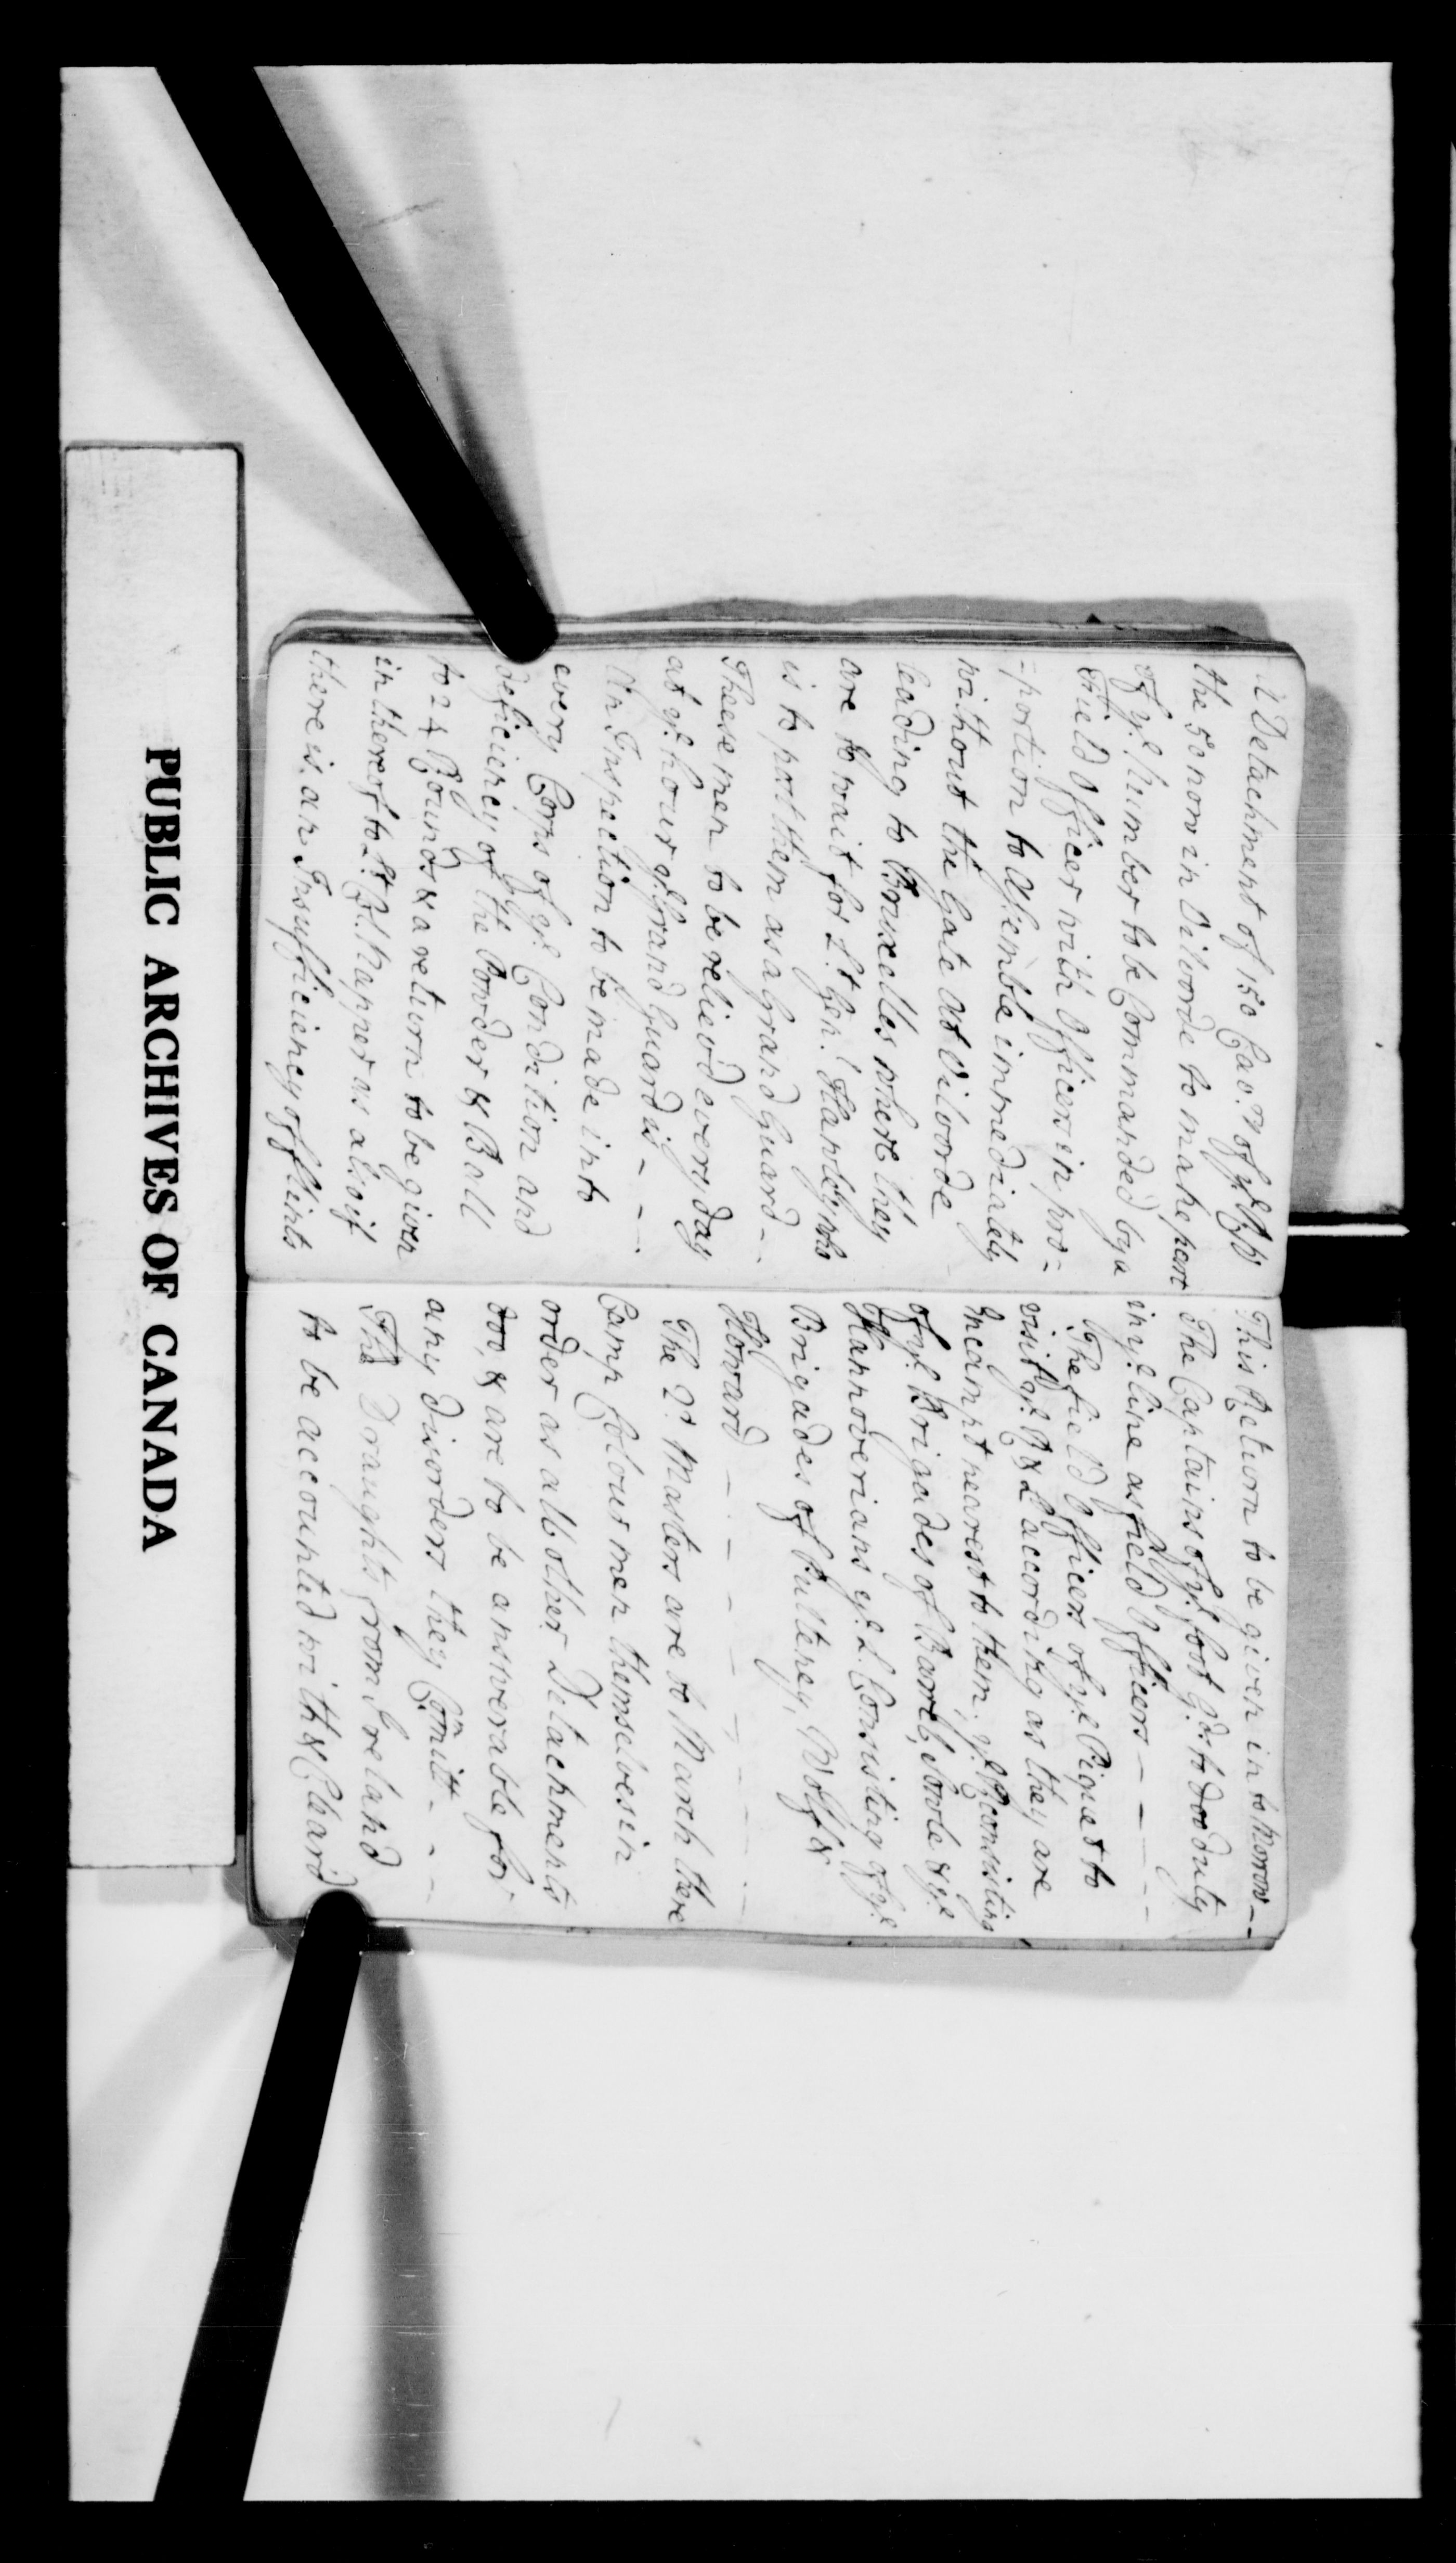 A Detachment of 150 Cav.ry of ye R W
the 50 now in Vilvorde to make part
of ye Number to be Commanded by a
Field Officer with Officers in pro-
=portion to Assemble immediately
without the Gate at Vilvorde
leading to Bruxelles where they
are to wait for L.t Gen.l Hawley who
is to post them as a Grand Guard - -
Theese men to be relievd every day
at ye hour ye Grand Guard is - - - -
An Inspection to be made into
every Corps of ye Condition and
deficiency of the Powder & Ball
to 24 Rounds & a return to be given
in thereof to Lt Cl. Napper as also if
there is an Insufficiency of flints
This Return to be given in to Morrow - -
The Captains of ye foot Gds to doo duty
in ye line as field Officers - - - - -
The field Officers of ye Piquet to
visit ye R & L according as they are
Incampt nearest to them, ye R Consisting
of ye Brigades of Barrel, Sowle & ye
Hannoverians ye L. Consisting of ye
Brigades of Pulteney, Wolf &
Howard - - - - - - - - -
The Qr Masters are to March there
Camp Colour men themselves in
order as all other Detachments
doo, & are to be answerable for
any disorders they Comitt - - -
The Draughts from Ireland
to be accounted with & Cleard
PUBLIC ARCHIVES OF CANADA